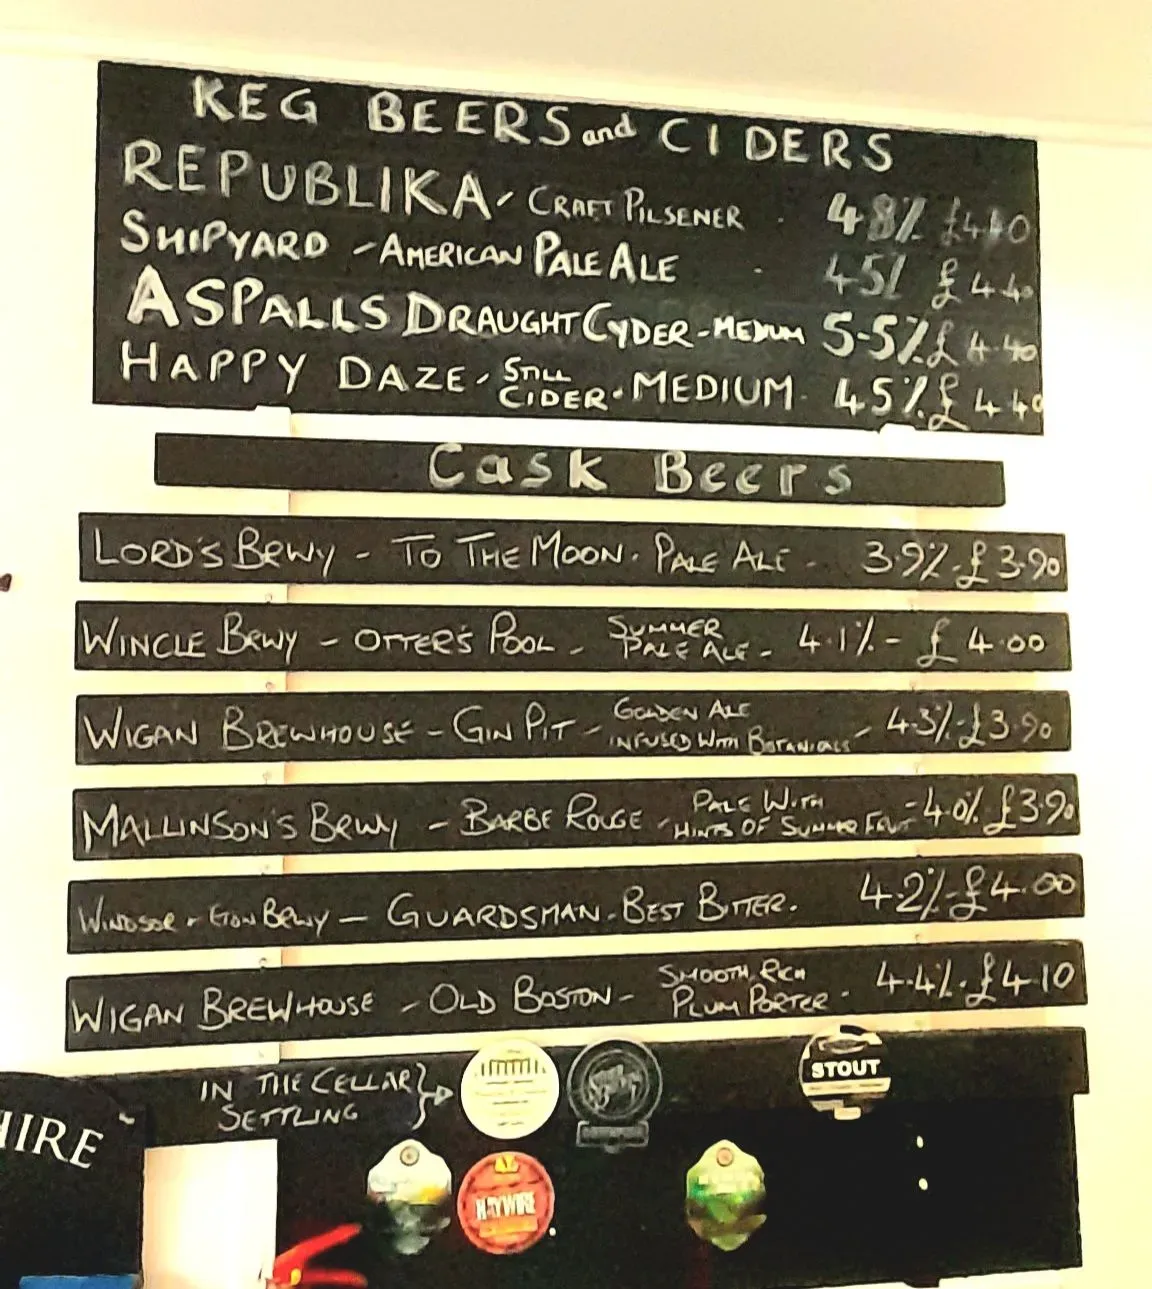 KEG BEERS and CIDERS
REPUBLIKA - CRAFT PILSENER . 4.8% £4.40
SHIPYARD - AMERICAN PALE ALE - 4.5% £4.40
ASPALLS DRAUGHT CYDER - MEDIUM 5.5% £4.40
HAPPY DAZE - STILL CIDER - MEDIUM - 4.5% £4.40
Cask Beers
LORD'S BRWY - TO THE MOON - PALE ALE - 3.9% - £3.90
WINCLE BRWY - OTTER'S POOL - SUMMER PALE ALE - 4.1% - £4.00
WIGAN BREWHOUSE - GIN PIT - GOLDEN ALE INFUSED WITH BOTANICALS - 4.3% - £3.90
MALLINSON'S BRWY - BARBE ROUGE - PALE WITH HINTS OF SUMMER FRUIT - 4.0% £3.90
WINDSOR + ETON BRWY - GUARDSMAN - BEST BITTER. 4.2% - £4.00
WIGAN BREWHOUSE - OLD BOSTON - SMOOTH, RICH PLUM PORTER - 4.4% - £4.10
IN THE CELLAR
SETTLING
STOUT
HIRE
HAYWIRE